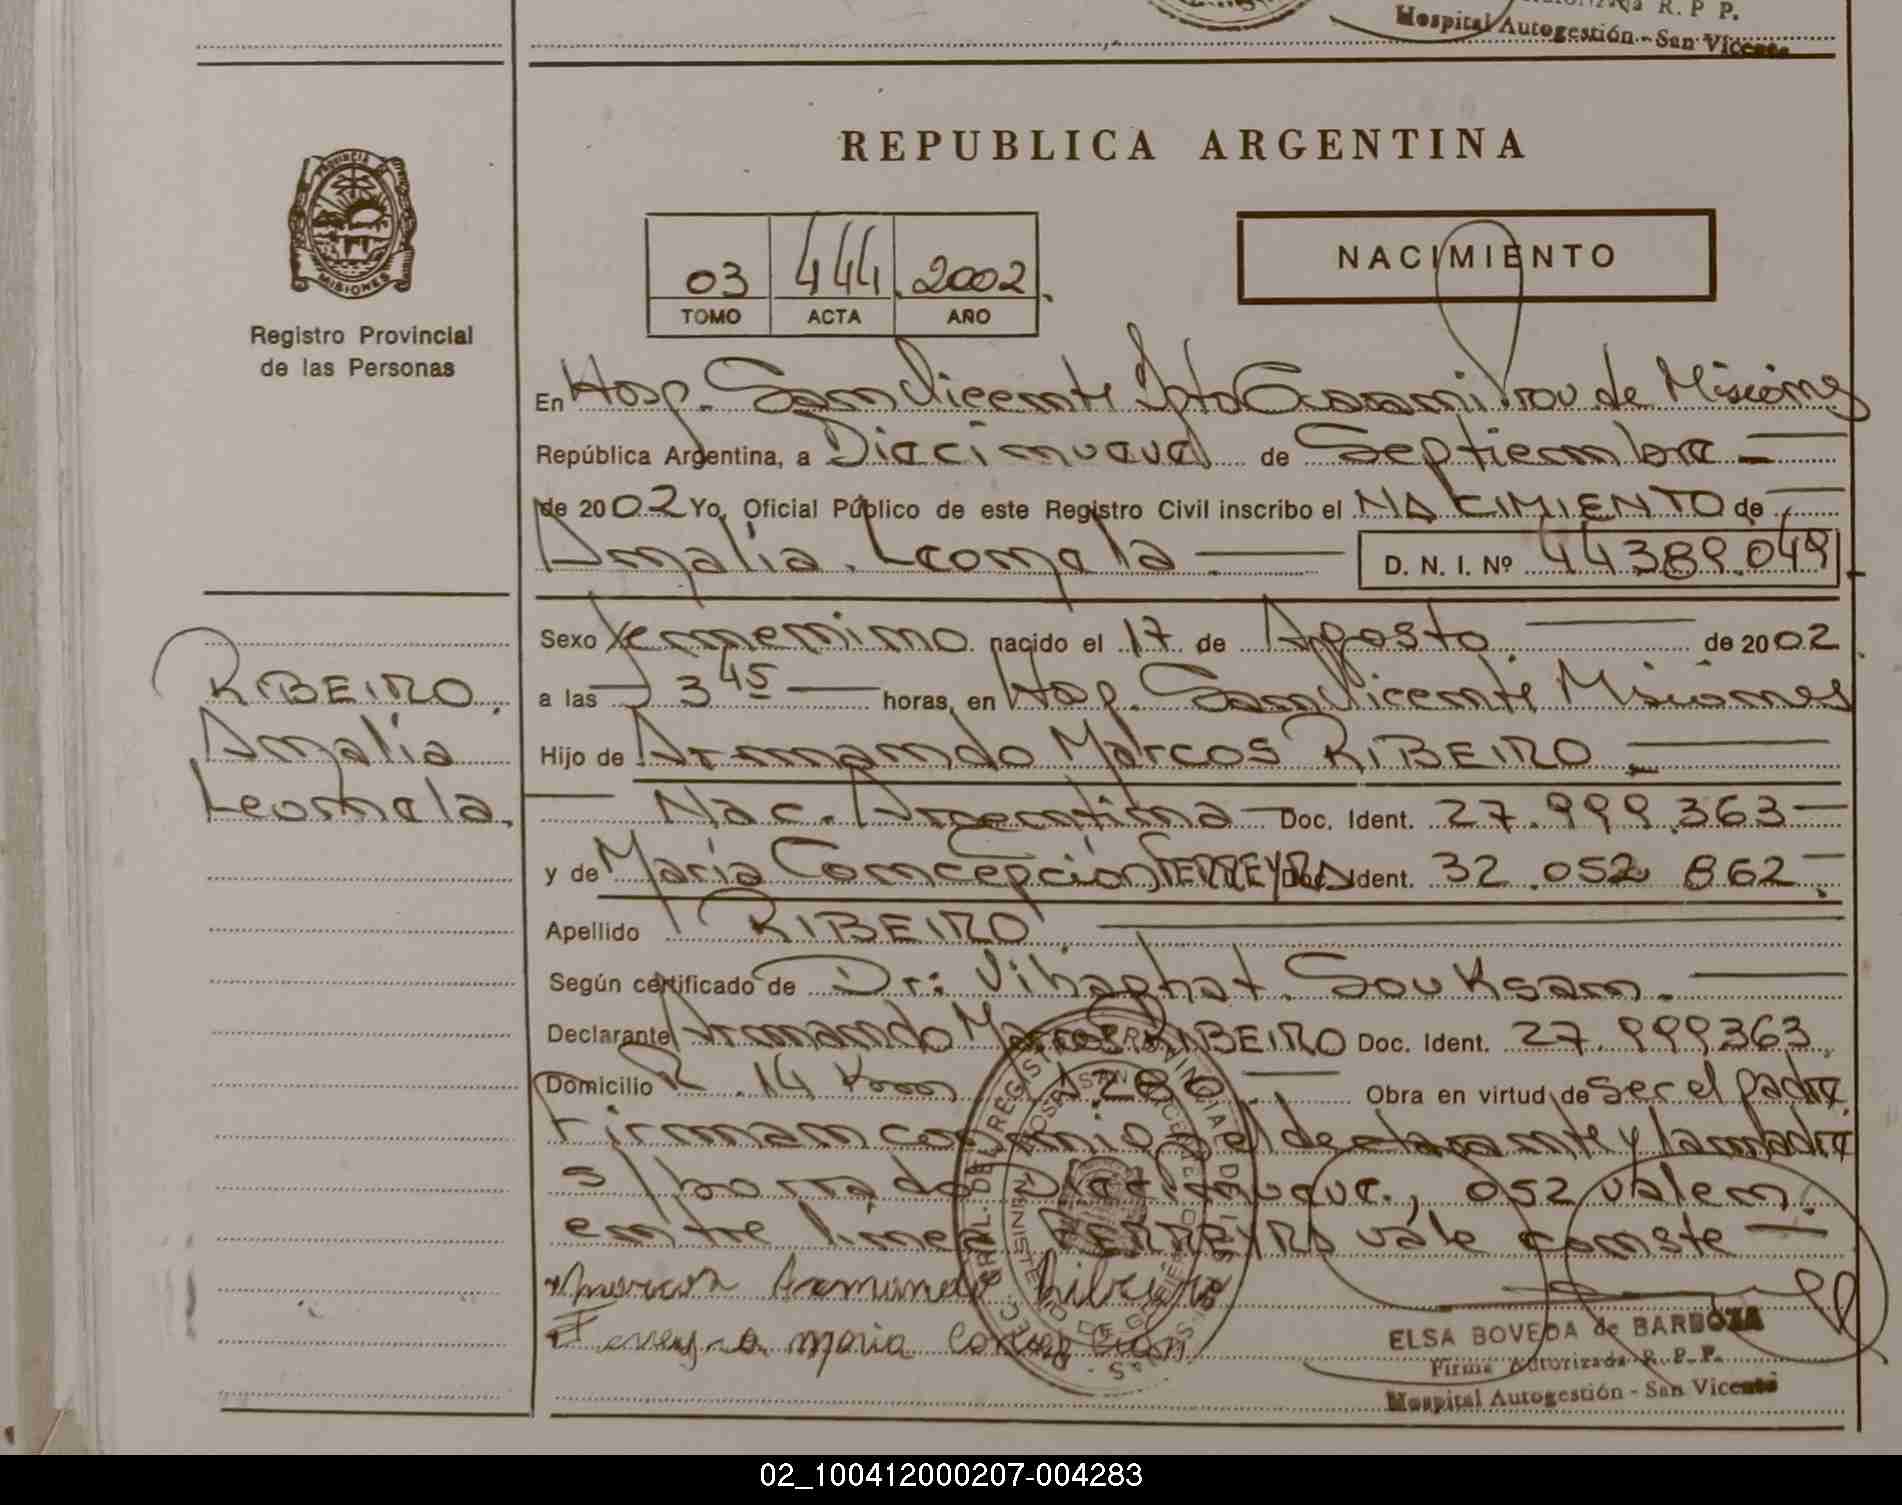 Autorizada R. P P.
Hospital Autogestión - San Vicente
REPUBLICA ARGENTINA
PROVINCIA DE
MISIONES
Registro Provincial
de las Personas
03 444 2002
TOMO ACTA AÑO
NACIMIENTO
En Hosp. San Vicente Dpto Guaraní Prov de Misiones
República Argentina, a Diecinueve de Septiembre
de 2002 Yo, Oficial Público de este Registro Civil inscribo el NACIMIENTO de
Amalia Leonela D. N. I. Nº 44389.049
Sexo Femenino nacido el 17 de Agosto de 2002
a las 3 45 horas, en Hosp. San Vicente Misiones
Hijo de Armando Marcos RIBEIRO
Nac. Argentina Doc. Ident. 27.999.363
y de María Concepción FERREYRA Doc. Ident. 32.052 862
Apellido RIBEIRO
Según certificado de Dr: Vihaphat Souksam.
Declarante Armando Marcos RIBEIRO Doc. Ident. 27.999363
Domicilio R. 14 Km 1.280 Obra en virtud de ser el padre
Firman conmigo el declarante y la madre
s/borrado Diecinueve, 052 valen.
entre línea FERREYRA vale conste
Marcos Armando Ribeiro
Ferreyra maria Concepcion
RIBEIRO
Amalia
Leonela.
ELSA BOVEDA de BARBOZA
Firma Autorizada R. P. P.
Hospital Autogestión - San Vicente
02_100412000207-004283